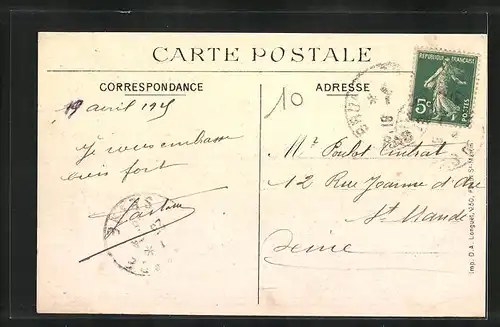 CARTE POSTALE
CORRESPONDANCE
ADRESSE
19 avril
10
Je vous embrasse
bien fort
Mr
12 Rue Jeanne d'Arc
St Mandé
Seine
REPUBLIQUE FRANÇAISE
5c
POSTES
Imp. D.A. Longuet, 250, Faub. St-Martin